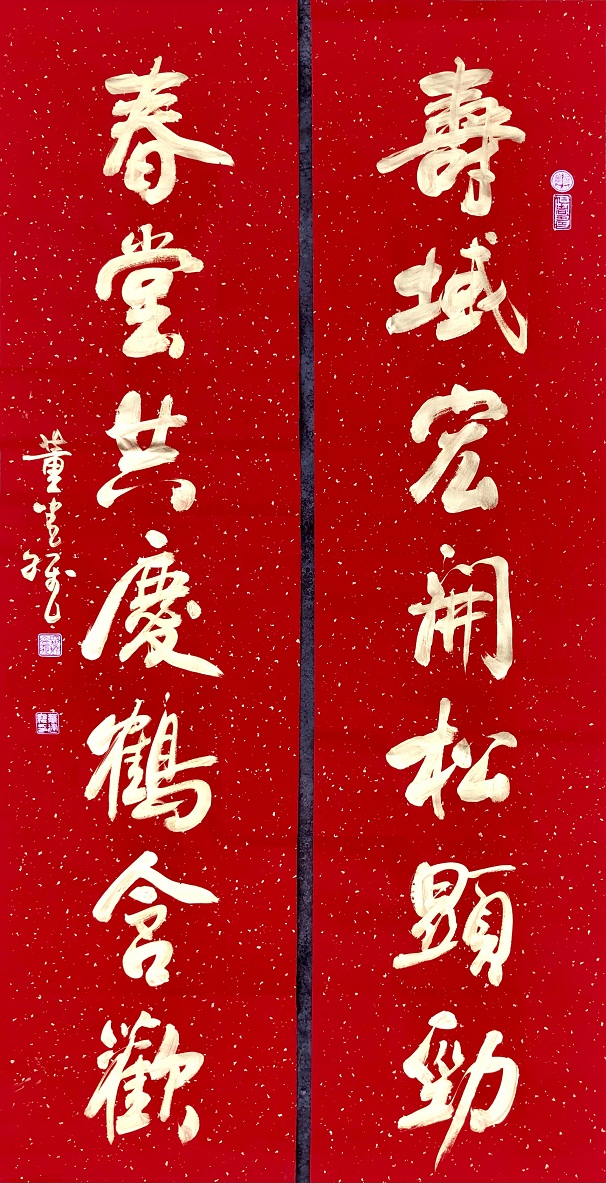 壽域宏開松顯勁
春堂共慶鶴含歡
董